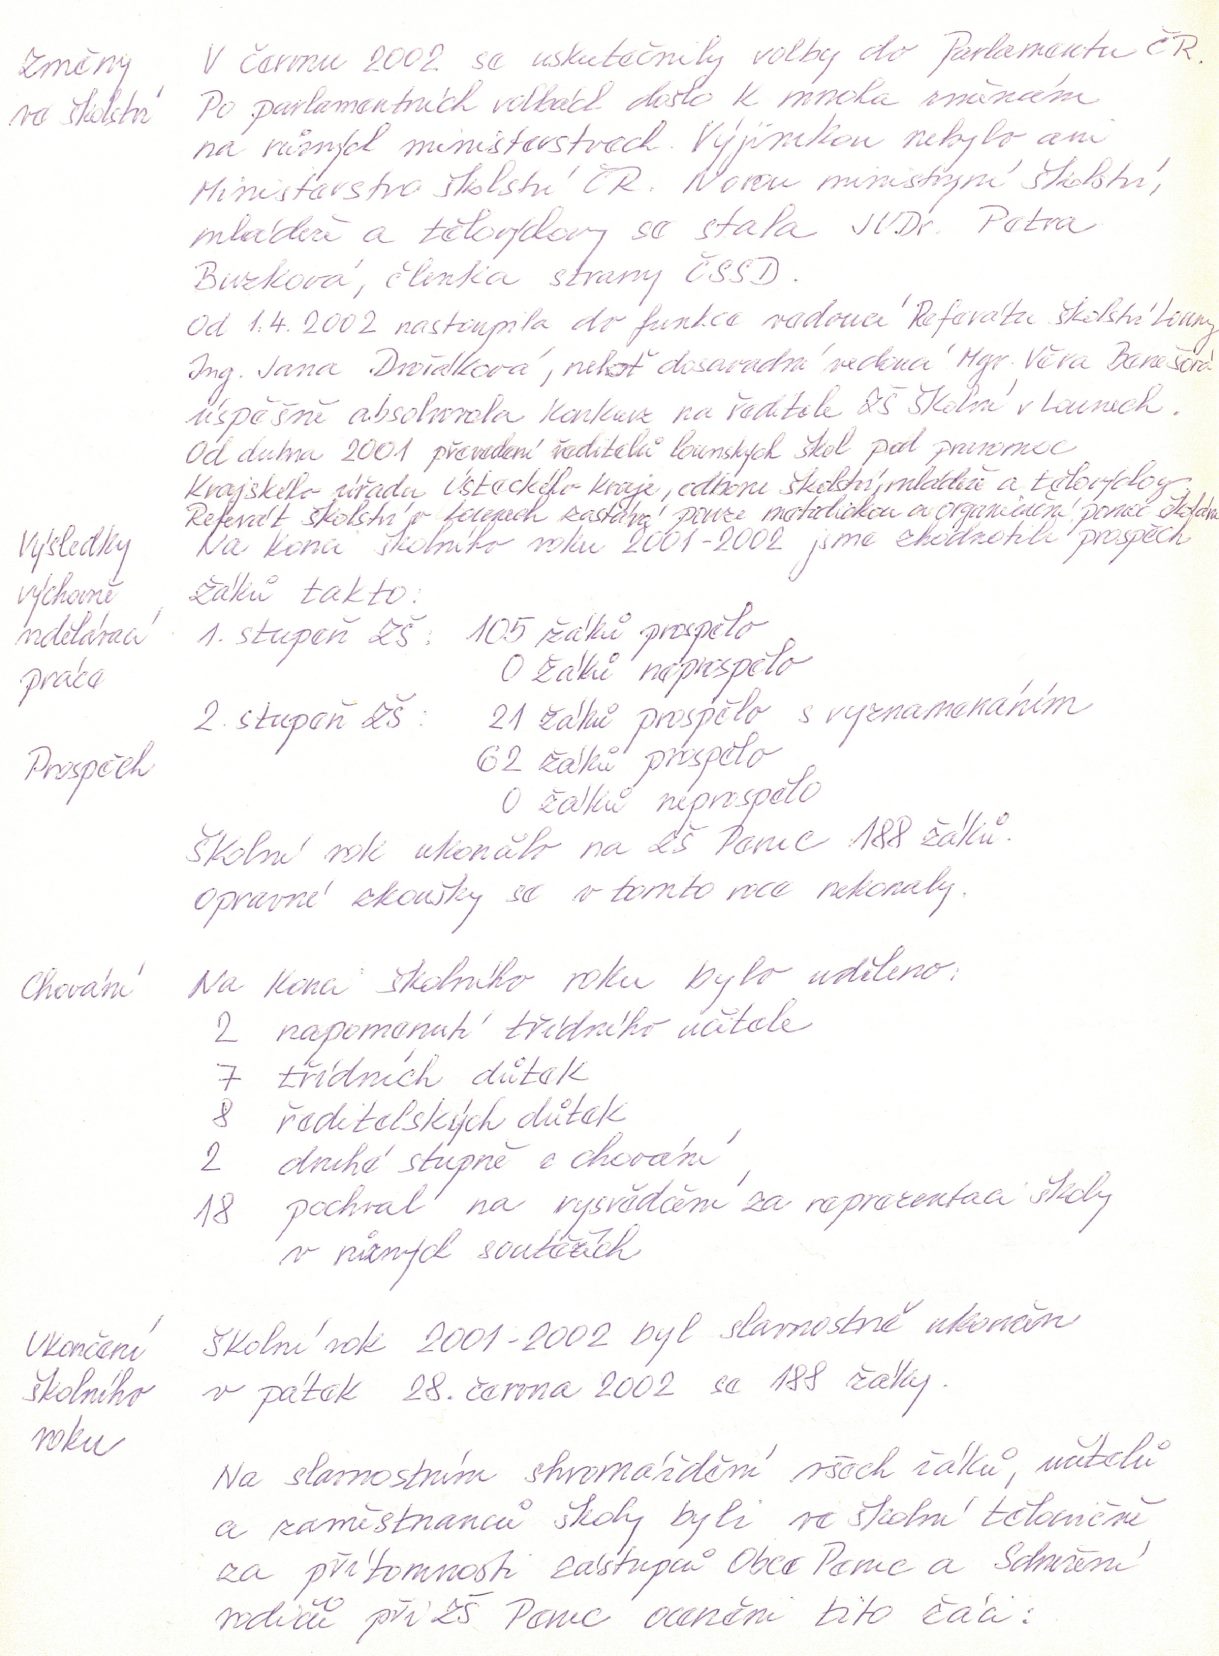 Změny V červnu 2002 se uskutečnily volby do Parlamentu ČR.
ve školství Po parlamentních volbách došlo k mnoha změnám
na různých ministerstvech. Výjimkou nebylo ani
Ministerstvo školství ČR. Novou ministryní školství,
mládeže a tělovýchovy se stala JUDr. Petra
Buzková, členka strany ČSSD.
Od 1.4. 2002 nastoupila do funkce vedoucí Referátu školství Louny
Ing. Jana Dvořáková, neboť dosavadní vedoucí Mgr. Věra Benešová
úspěšně absolvovala konkurz na ředitele ZŠ Školní v Lounech.
Od dubna 2001 převedení ředitelů lounských škol pod pravomoc
Krajského úřadu Ústeckého kraje, odboru školství, mládeže a tělovýchovy.
Referát školství v Lounech zastává pouze metodickou a organizační pomoc školám
Výsledky Na konci školního roku 2001-2002 jsme zhodnotili prospěch
výchovně žáků takto:
vzdělávací 1. stupeň ZŠ: 105 žáků prospělo
práce 0 žáků neprospělo
2. stupeň ZŠ: 21 žáků prospělo s vyznamenáním
Prospěch 62 žáků prospělo
0 žáků neprospělo
Školní rok ukončilo na ZŠ Peruc 188 žáků.
Opravné zkoušky se v tomto roce nekonaly.
Chování Na konci školního roku bylo uděleno:
2 napomenutí třídního učitele
7 třídních důtek
8 ředitelských důtek
2 druhé stupně z chování
18 pochval na vysvědčení za reprezentaci školy
v různých soutěžích
Ukončení Školní rok 2001-2002 byl slavnostně ukončen
školního v pátek 28. června 2002 se 188 žáky.
roku
Na slavnostním shromáždění všech žáků, učitelů
a zaměstnanců školy byli ve školní tělocvičně
za přítomnosti zástupců Obce Peruc a Sdružení
rodičů při ZŠ Peruc oceněni tito žáci: